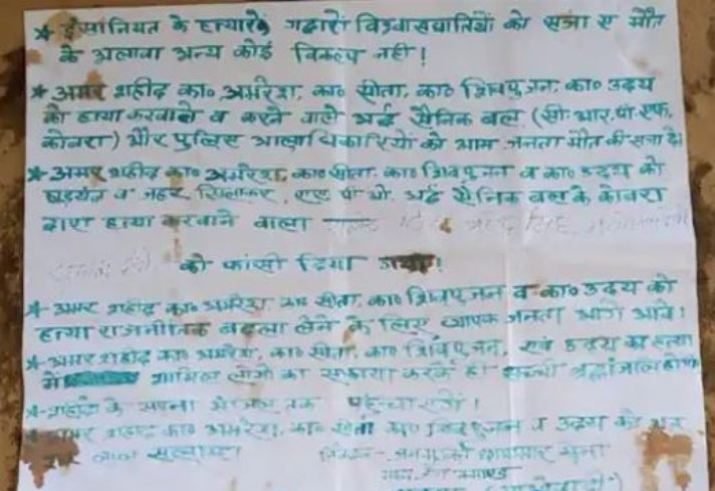 * इंसानियत के हत्यारे गद्दारों विश्वासघातियों को सजा ए मौत
के अलावा अन्य कोई विकल्प नहीं!
* अमर शहीद का० अमरेश, का० सीता, का० शिवपुजन, का० उदय
की हत्या करवाने व करने वाले अर्द्ध सैनिक बल (सी. आर. पी. एफ.
कोबरा) और पुलिस आलाधिकारियों को आम जनता मौत की सजा दें।
* अमर शहीद का० अमरेश, का० सीता, का० शिवपुजन व का० उदय को
षडयंत्र व जहर खिलाकर, एस पी ओ. अर्द्ध सैनिक बल के कोबरा
द्वारा हत्या करवाने वाला
को फांसी दिया गया!
* अमर शहीद का० अमरेश, का० सीता, का० शिवपुजन व का० उदय की
हत्या राजनीतिक बदला लेने के लिए व्यापक जनता आगे आवें।
* अमर शहीद का० अमरेश, का० सीता, का० शिवपुजन, एवं उदय का हत्या
में शामिल लोगों का सफाया करके ही सच्ची श्रद्धांजलि होगी
* शहीदों के सपना मंजिल तक
अमर शहीद का० अमरेश, का० सीता का० शिवपुजन व उदय को
लाल सलाम।